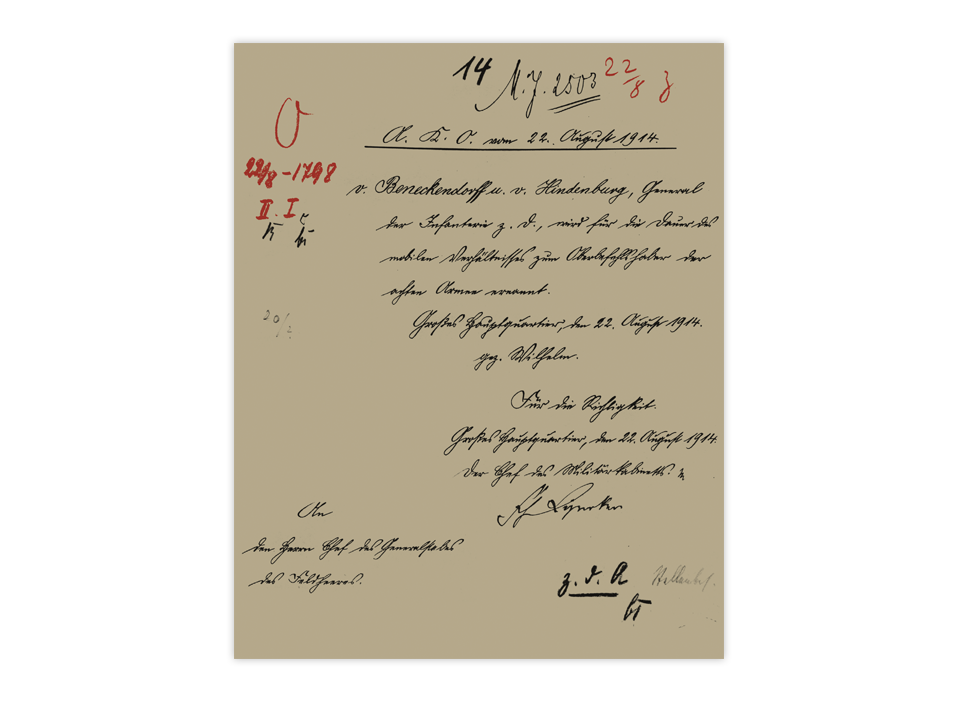 14
M. J. 2503
22/8
A. K. O. vom 22. August 1914.
22/8 - 1798
II. I c
v. Beneckendorff u. v. Hindenburg, General
der Infanterie z. D., wird für die Dauer des
mobilen Verhältnisses zum Oberbefehlshaber der
achten Armee ernannt.
Großes Hauptquartier, den 22. August 1914.
gez. Wilhelm.
Für die Richtigkeit.
Großes Hauptquartier, den 22. August 1914.
Der Chef des Militärkabinetts.
Fh Lyncker
An
den Herrn Chef des Generalstabes
des Feldheeres.
z. d. A